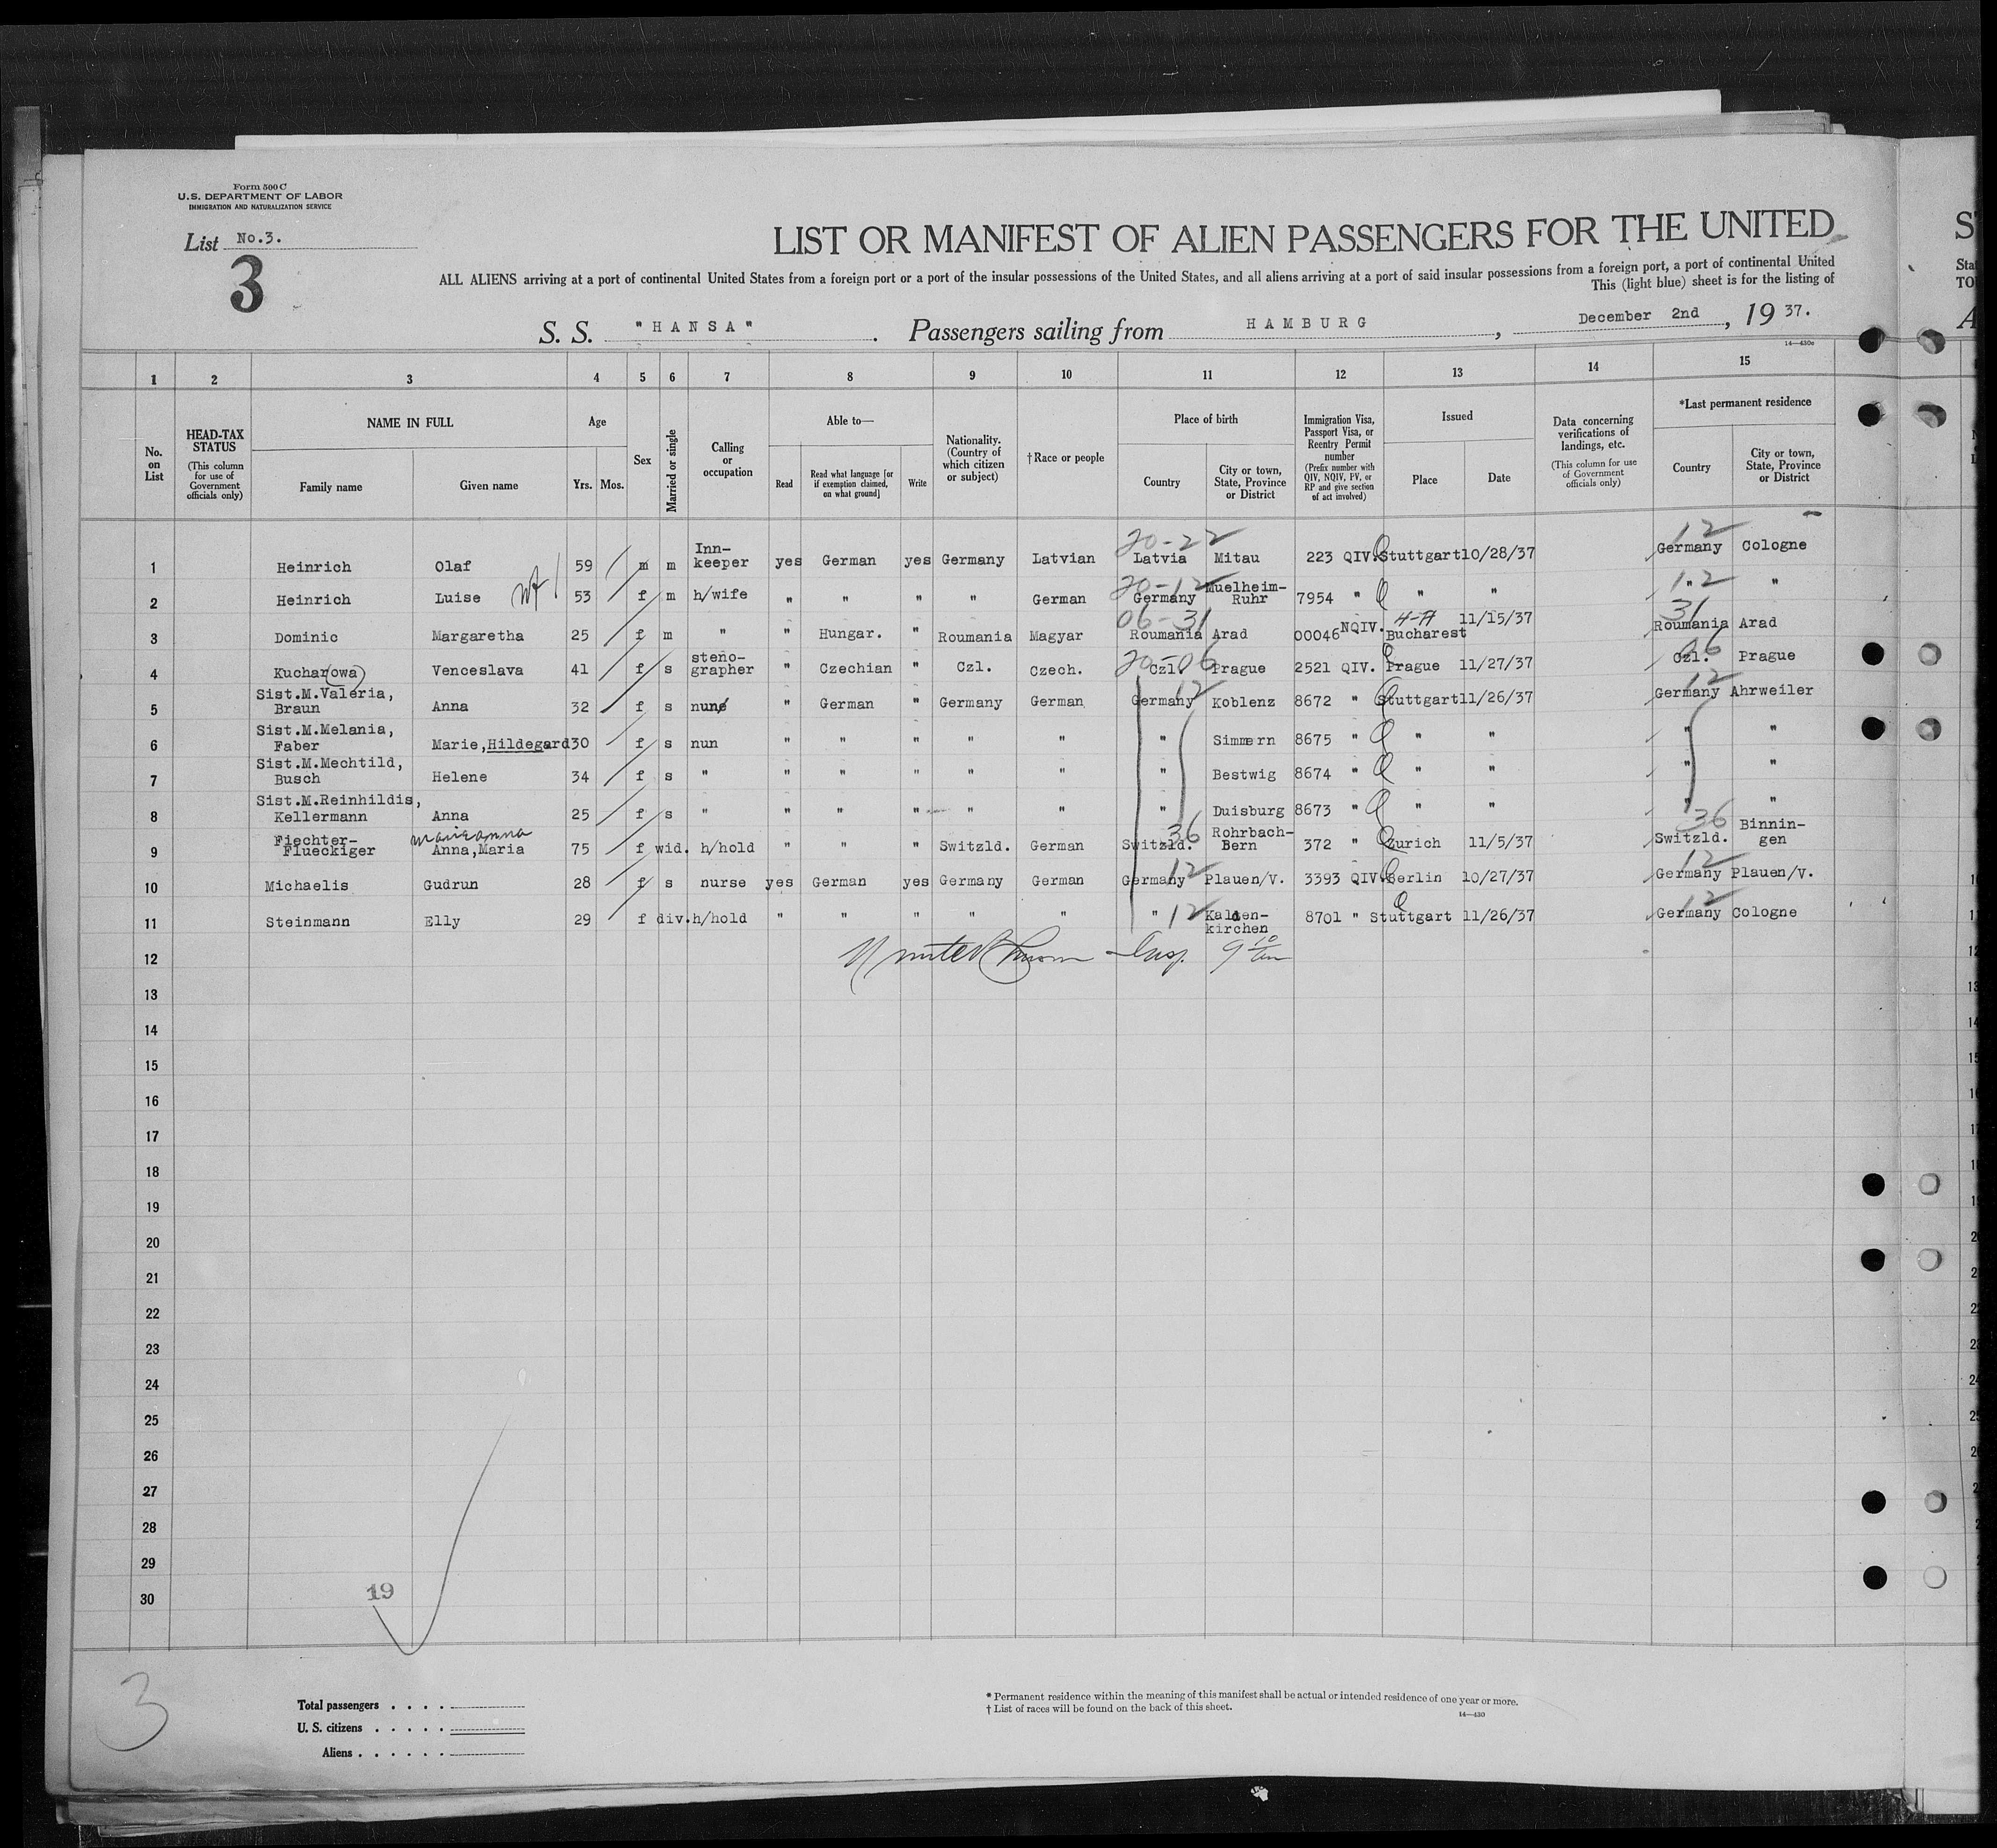 Form 500 C
U.S. DEPARTMENT OF LABOR
IMMIGRATION AND NATURALIZATION SERVICE
List No.3.
3
LIST OR MANIFEST OF ALIEN PASSENGERS FOR THE UNITED
ALL ALIENS arriving at a port of continental United States from a foreign port or a port of the insular possessions of the United States, and all aliens arriving at a port of said insular possessions from a foreign port, a port of continental United
This (light blue) sheet is for the listing of
S. S. "HANSA". Passengers sailing from HAMBURG, December 2nd, 1937.
14—430c
1 2 3 4 5 6 7 8 9 10 11 12 13 14 15
No. on List
HEAD-TAX STATUS (This column for use of Government officials only)
NAME IN FULL
Family name Given name
Age
Yrs. Mos.
Sex
Married or single
Calling or occupation
Able to—
Read
Read what language [or if exemption claimed, on what ground]
Write
Nationality. (Country of which citizen or subject)
†Race or people
Place of birth
Country
City or town, State, Province or District
Immigration Visa, Passport Visa, or Reentry Permit number (Prefix number with QIV, NQIV, PV, or RP and give section of act involved)
Issued
Place Date
Data concerning verifications of landings, etc. (This column for use of Government officials only)
*Last permanent residence
Country
City or town, State, Province or District
20-22 12
1 Heinrich Olaf 59 m m Inn-keeper yes German yes Germany Latvian Latvia Mitau 223 QIV. Stuttgart 10/28/37 Germany Cologne
20-12 12
2 Heinrich Luise 53 f m h/wife " " " " German Germany Muelheim-Ruhr 7954 " " " " "
06-31 31
3 Dominic Margaretha 25 f m " " Hungar. " Roumania Magyar Roumania Arad 00046 NQIV. Bucharest 11/15/37 Roumania Arad
20-06 06
4 Kuchar(owa) Venceslava 41 f s steno-grapher " Czechian " Czl. Czech. Czl. Prague 2521 QIV. Prague 11/27/37 Czl. Prague
12 12
5 Sist.M.Valeria, Braun Anna 32 f s nun " German " Germany German Germany Koblenz 8672 " Stuttgart 11/26/37 Germany Ahrweiler
6 Sist.M.Melania, Faber Marie,Hildegard 30 f s nun " " " " " " Simmern 8675 " " " " "
7 Sist.M.Mechtild, Busch Helene 34 f s " " " " " " " Bestwig 8674 " " " " "
8 Sist.M.Reinhildis, Kellermann Anna 25 f s " " " " " " " Duisburg 8673 " " " " "
Marieanna 36 36
9 Fiechter-Flueckiger Anna,Maria 75 f wid. h/hold " " " Switzld. German Switzld. Rohrbach-Bern 372 " Zurich 11/5/37 Switzld. Binnin-gen
12 12
10 Michaelis Gudrun 28 f s nurse yes German yes Germany German Germany Plauen/V. 3393 QIV. Berlin 10/27/37 Germany Plauen/V.
12 12
11 Steinmann Elly 29 f div. h/hold " " " " " " Kalden-kirchen 8701 " Stuttgart 11/26/37 Germany Cologne
12
13
14
15
16
17
18
19
20
21
22
23
24
25
26
27
28
29
30
19
3
Total passengers
U. S. citizens
Aliens
* Permanent residence within the meaning of this manifest shall be actual or intended residence of one year or more.
† List of races will be found on the back of this sheet.
14—430